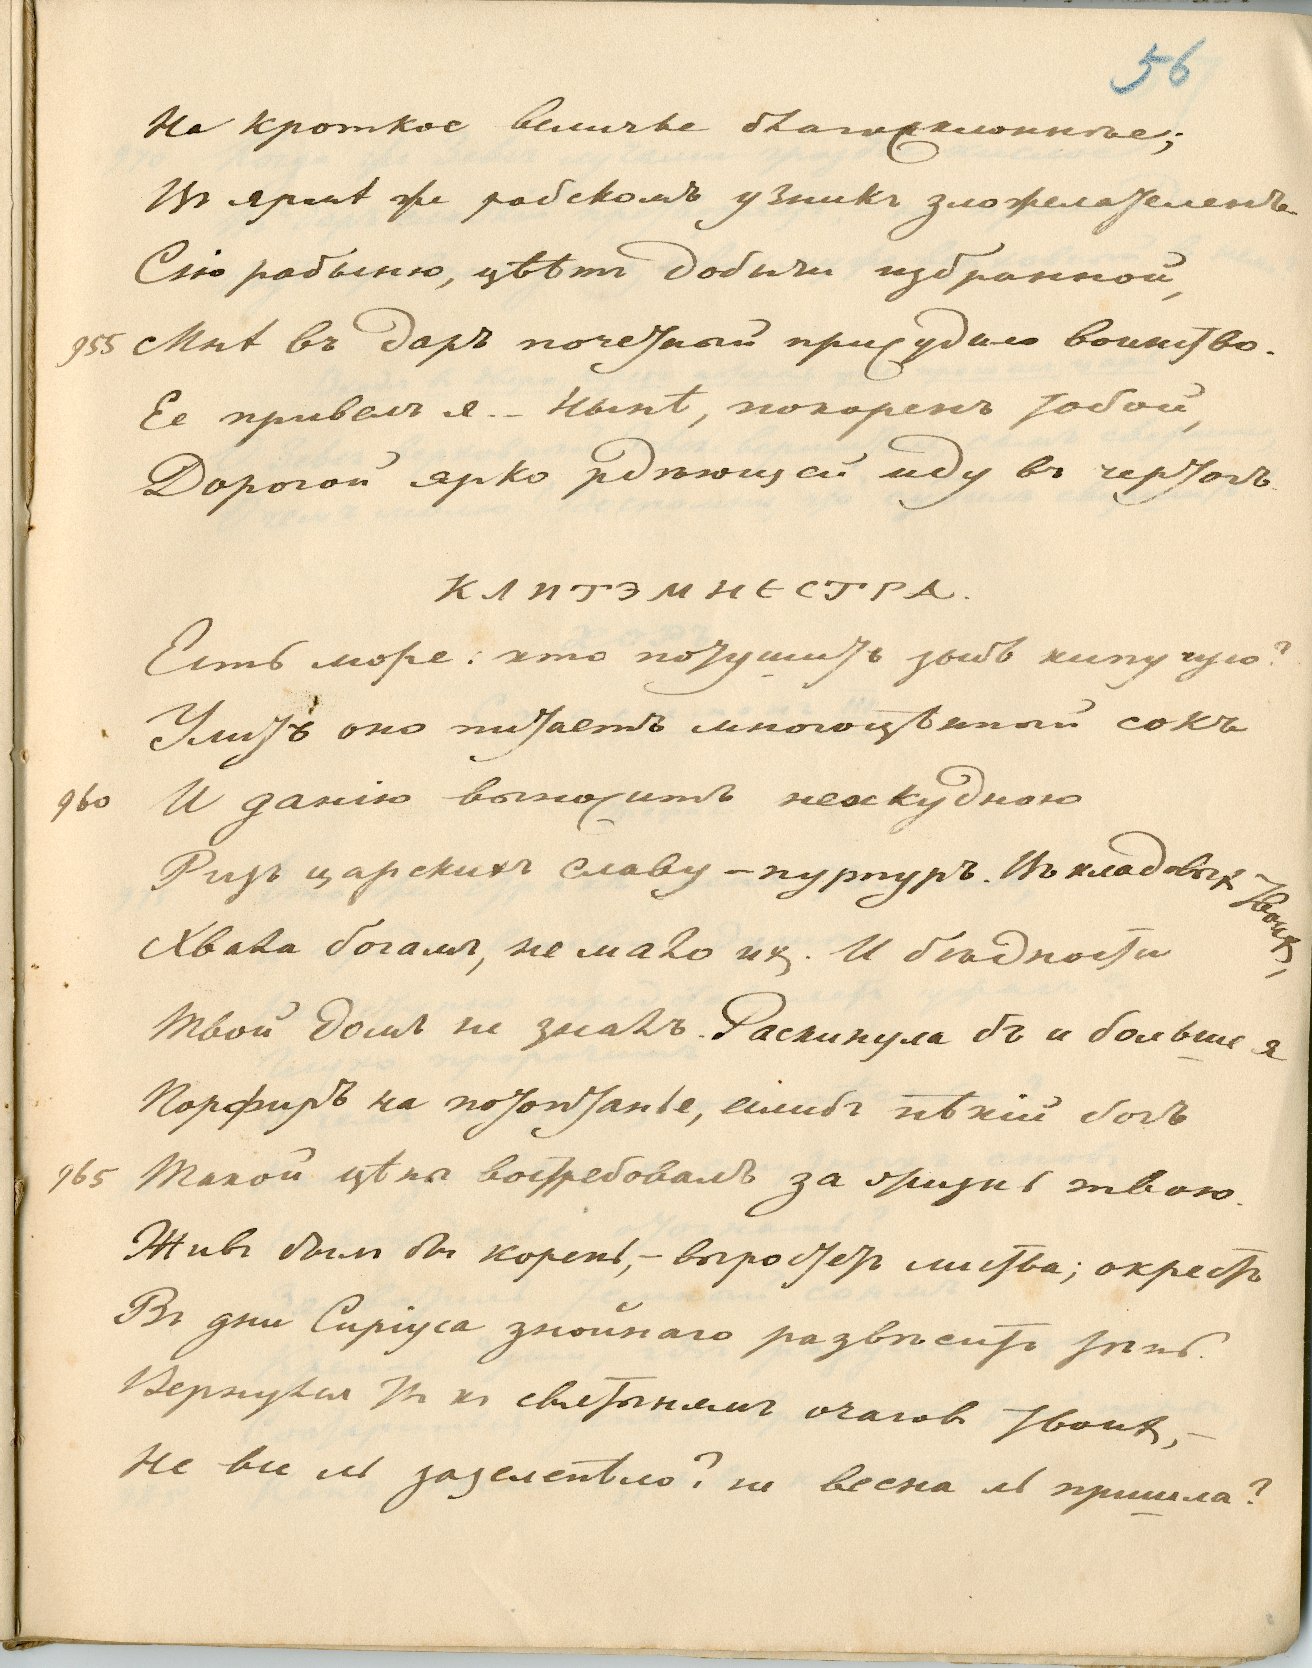 56
На кроткое величье благосклоннѣе;
Въ ярмѣ же рабскомъ узникъ зложелателенъ.
Сію рабыню, цвѣтъ добычи избранной,
955 Мнѣ въ даръ почетный присудило воинство.
Ее привелъ я. – Нынѣ, покоренъ тобой,
Дорогой ярко рдѣющей иду въ чертогъ.
КЛИТЭМНЕСТРА.
Есть море: кто потушитъ зыбь кипучую?
Улитъ оно питаетъ многоцѣнный сокъ
960 И данію выноситъ нескудною
Ризъ царскихъ славу – пурпуръ. Въ кладовыхъ твоихъ,
Хвала богамъ, не мало их. И бѣдности
Твой домъ не зналъ. Раскинула бъ и больше я
Порфиръ на потоптанье, еслибъ нѣкій богъ
965 Такой цѣны востребовалъ за жизнь твою.
Живъ былъ бы корень, – выростетъ листва; окрестъ
Въ дни Сиріуса знойнаго развѣситъ тѣнь.
Вернулся ты къ святынямъ очаговъ твоихъ, –
Не все ль зазеленѣло? не весна ль пришла?